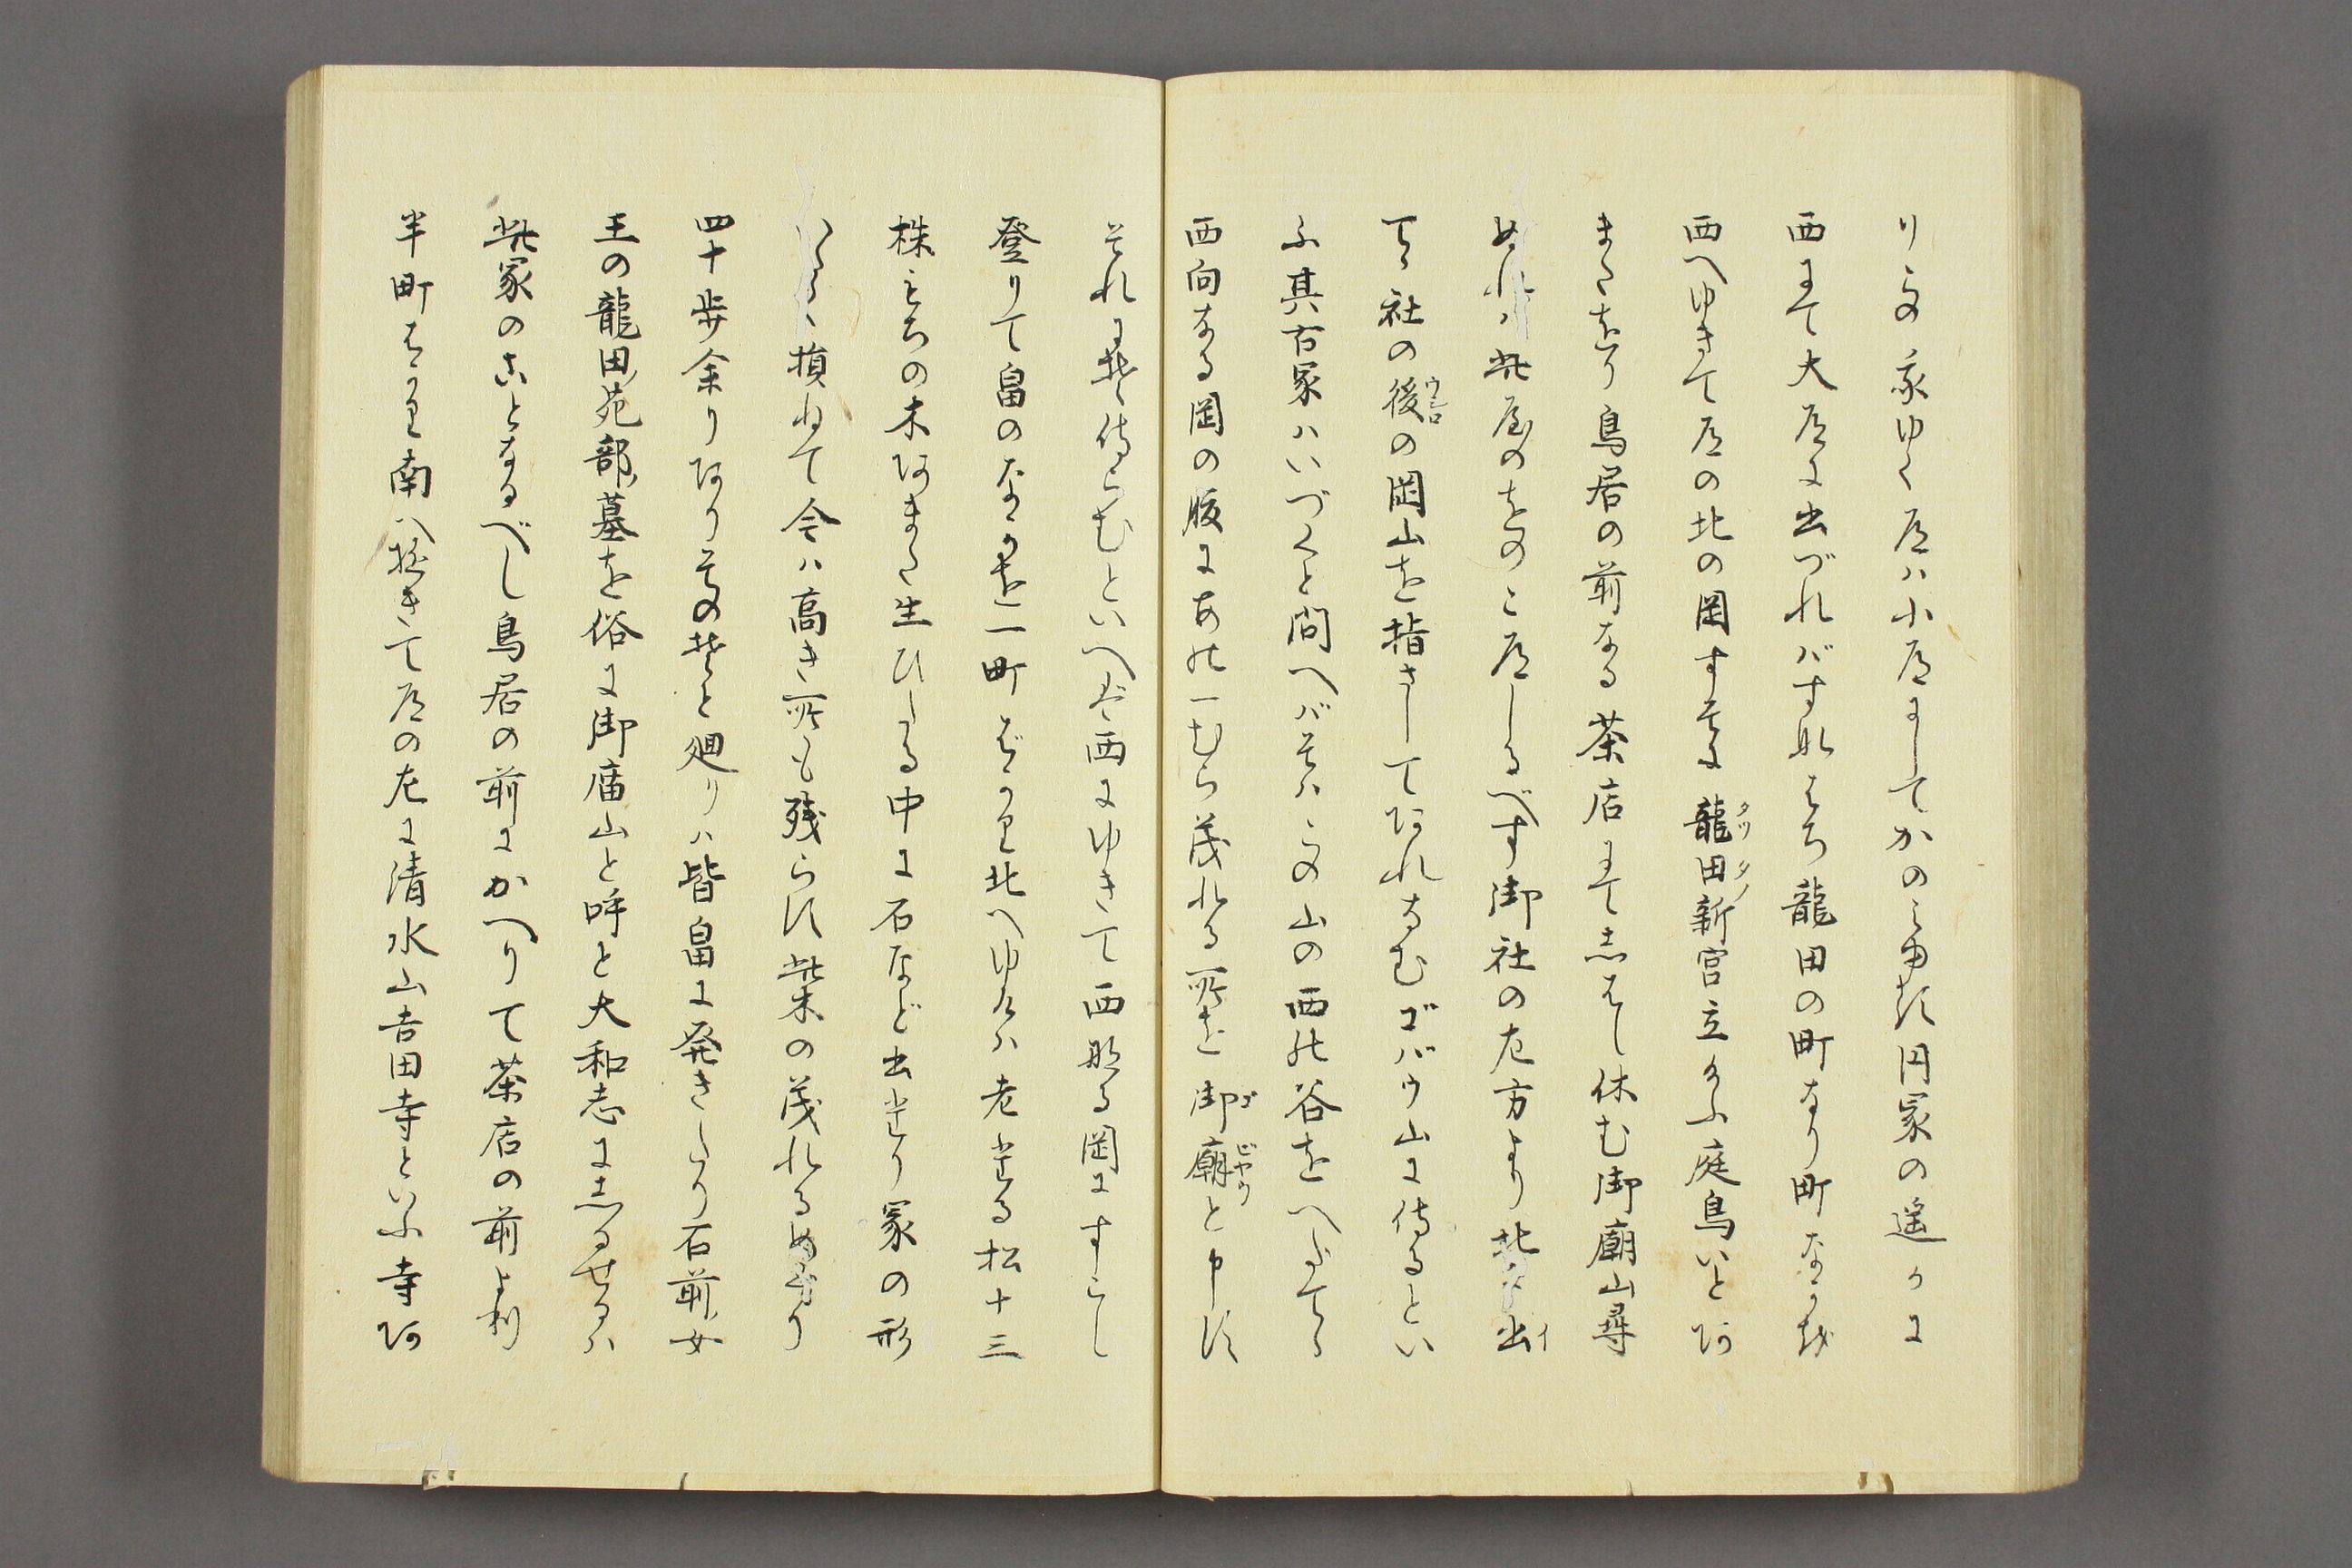 り我ゆく道ハ小道にしてかのミゆる円冢の遥かに
西にて大道に出づればすなはち龍田の町なり町なかを
西へゆきて道の北の岡すそに龍田新宮立給ふ庭鳥いとあ
タツタノ
またをり鳥居の前なる茶店にてしはし休む御廟山尋
ぬれハ此屋のをのこ道しるべす御社の左方より北に出
イ
て社の後の岡山を指さしてあれなむゴバウ山に侍るとい
ウシロ
ふ其古冢ハいづくと問へバそハこの山の西の谷をへだてゝ
西向なる岡の腹にある一むら茂れる所を御廟と申す
ゴビヤウ
それに侍らむといへば西にゆきて西なる岡にすこし
登りて畠のなかを一町ばかり北へゆけハ老たる松十三
株もちの木あまた生ひたる中に石など出たり冢の形
いたく損ねて今ハ高き所も残らす柴木の茂れるめぐり
四十歩余りありそのもと廻りハ皆畠に発きたり石前女
王の龍田苑部墓を俗に御庿山と呼と大和志にしるせるハ
此冢のことなるべし鳥居の前にかへりて茶店の前より
半町はかり南ハゆきて道の左に清水山吉田寺といふ寺あ